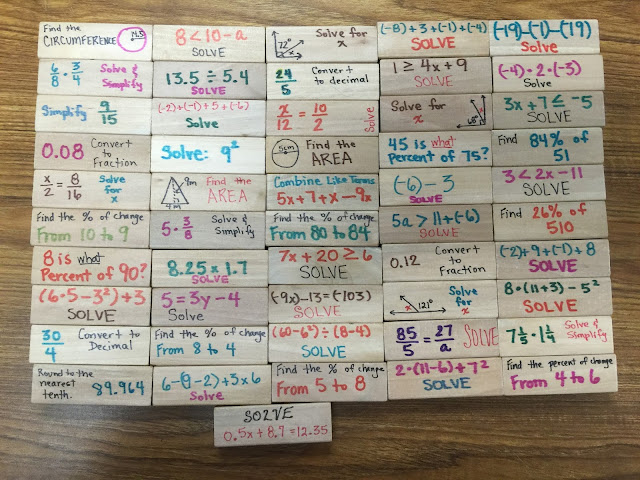 Find the
CIRCUMFERENCE 14.5
8 < 10 - a
SOLVE
72°
x
Solve for
x
(-8) + 3 + (-1) + (-4)
SOLVE
(-19) - (-1) - (-19)
Solve
6/8 · 3/4 Solve &
Simplify
13.5 ÷ 5.4
SOLVE
24/5 Convert
to decimal
1 ≥ 4x + 9
SOLVE
(-4) · 2 · (-3)
Solve
Simplify 9/15
(-2) + (-1) + 5 + (-6)
Solve
x/12 = 10/2 Solve
Solve for
x
x 68°
3x + 7 ≤ -5
SOLVE
0.08 Convert
to
Fraction
Solve: 9²
5cm Find the
AREA
45 is what
Percent of 75?
Find 84% of
51
x/2 = 8/16 Solve
for
x
9m
4m
Find the
AREA
Combine Like Terms
5x + 7 + x - 9x
(-6) - 3
SOLVE
3 < 2x - 11
SOLVE
Find the % of change
From 10 to 9
5 · 3/8 Solve &
Simplify
Find the % of change
From 80 to 84
5a > 11 + (-6)
SOLVE
Find 26% of
510
8 is what
Percent of 90?
8.25 x 1.7
SOLVE
7x + 20 ≥ 6
SOLVE
0.12 Convert
to
Fraction
(-2) + 9 + (-1) + 8
SOLVE
(6·5 - 3²) + 3
SOLVE
5 = 3y - 4
Solve
(-9x) - 13 = (-103)
SOLVE
x 121°
Solve
for
x
8 · (11+3) - 5²
SOLVE
30/4 Convert to
Decimal
Find the % of change
From 8 to 4
(60 - 6²) ÷ (8-4)
SOLVE
85/5 = 27/a SOLVE
7 1/5 · 1 1/4 Solve &
Simplify
Round to the
nearest
tenth. 89.964
6 - (9 - 2) + 3 x 6
Solve
Find the % of change
From 5 to 8
2 · (11-6) + 7²
SOLVE
Find the percent of change
From 4 to 6
SOLVE
0.5x + 8.7 = 12.35